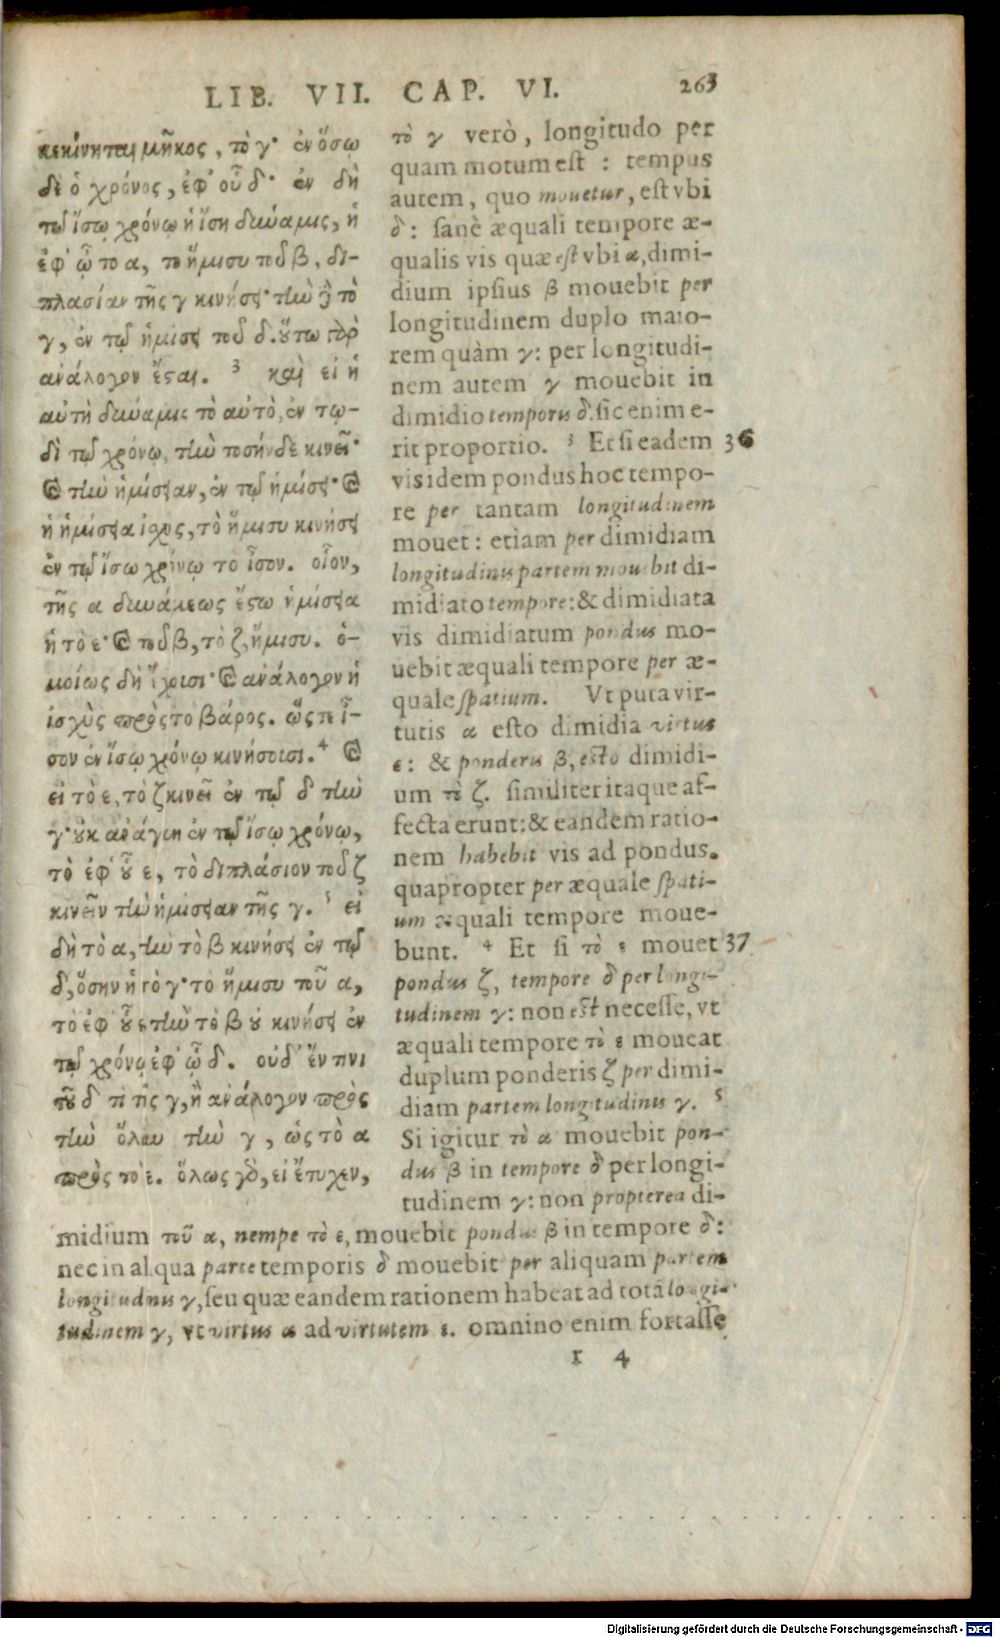 LIB. VII. CAP. VI. 263
κεκίνηται μῆκος, τὸ γ· ἐν ὅσῳ
δὲ ὁ χρόνος, ἐφ' οὗ δ· ἐν δὴ
τῷ ἴσῳ χρόνῳ ἡ ἴση δύναμις, ἡ
ἐφ' ᾧ τὸ α, τὸ ἥμισυ τοῦ β, δι-
πλασίαν τῆς γ κινήσει· τὴν δὲ τὸ
γ, ἐν τῷ ἡμίσει τοῦ δ. οὕτω γὰρ
ἀνάλογον ἔσται. ³ καὶ εἰ ἡ
αὐτὴ δύναμις τὸ αὐτὸ, ἐν τῳ-
δὶ τῷ χρόνῳ, τὴν τοσήνδε κινεῖ·
καὶ τὴν ἡμίσειαν, ἐν τῷ ἡμίσει· καὶ
ἡ ἡμίσεια ἰσχὺς, τὸ ἥμισυ κινήσει
ἐν τῷ ἴσῳ χρόνῳ τὸ ἴσον. οἷον,
τῆς α δυνάμεως ἔστω ἡμίσεια
ἡ τὸ ε· καὶ τοῦ β, τὸ ζ, ἥμισυ. ὁ-
μοίως δὴ ἔχουσι· καὶ ἀνάλογον ἡ
ἰσχὺς πρὸς τὸ βάρος. ὥστε ἴ-
σον ἐν ἴσῳ χρόνῳ κινήσουσι. ⁴ καὶ
εἰ τὸ ε, τὸ ζ κινεῖ ἐν τῷ δ τὴν
γ· οὐκ ἀνάγκη ἐν τῷ ἴσῳ χρόνῳ,
τὸ ἐφ' οὗ ε, τὸ διπλάσιον τοῦ ζ
κινεῖν τὴν ἡμίσειαν τῆς γ. ⁵ εἰ
δὴ τὸ α, τὴν τὸ β κινήσει ἐν τῷ
δ, ὅσην ἡ τὸ γ· τὸ ἥμισυ τοῦ α,
τὸ ἐφ' οὗ ε τὴν τὸ β οὐ κινήσει ἐν
τῷ χρόνῳ ἐφ' ᾧ δ. οὐδ' ἔν τινι
τοῦ δ τι τῆς γ, ἢ ἀνάλογον πρὸς
τὴν ὅλην τὴν γ, ὡς τὸ α
πρὸς τὸ ε. ὅλως γὰρ, εἰ ἔτυχεν,
τὸ γ verò, longitudo per
quam motum est : tempus
autem, quo mouetur, est vbi
δ : sanè æquali tempore æ-
qualis vis quæ est vbi α, dimi-
dium ipsius β mouebit per
longitudinem duplo maio-
rem quàm γ : per longitudi-
nem autem γ mouebit in
dimidio temporis δ. sic enim e-
rit proportio. ³ Et si eadem 36
vis idem pondus hoc tempo-
re per tantam longitudinem
mouet : etiam per dimidiam
longitudinis partem mouebit di-
midiato tempore: & dimidiata
vis dimidiatum pondus mo-
uebit æquali tempore per æ-
quale spatium. Vt puta vir-
tutis α esto dimidia virtus
ε : & ponderis β, esto dimidi-
um τὸ ζ. similiter itaque af-
fecta erunt: & eandem ratio-
nem habebit vis ad pondus.
quapropter per æquale spati-
um æquali tempore moue-
bunt. ⁴ Et si τὸ ε mouet 37
pondus ζ, tempore δ per longi-
tudinem γ : non est necesse, vt
æquali tempore τὸ ε moueat
duplum ponderis ζ per dimi-
diam partem longitudinis γ. ⁵
Si igitur τὸ α mouebit pon-
dus β in tempore δ per longi-
tudinem γ : non propterea di-
midium τοῦ α, nempe τὸ ε, mouebit pondus β in tempore δ :
nec in aliqua parte temporis δ mouebit per aliquam partem
longitudinis γ, seu quæ eandem rationem habeat ad totā longi-
tudinem γ, vt virtus α ad virtutem ε. omnino enim fortasse
r 4
Digitalisierung gefördert durch die Deutsche Forschungsgemeinschaft - DFG